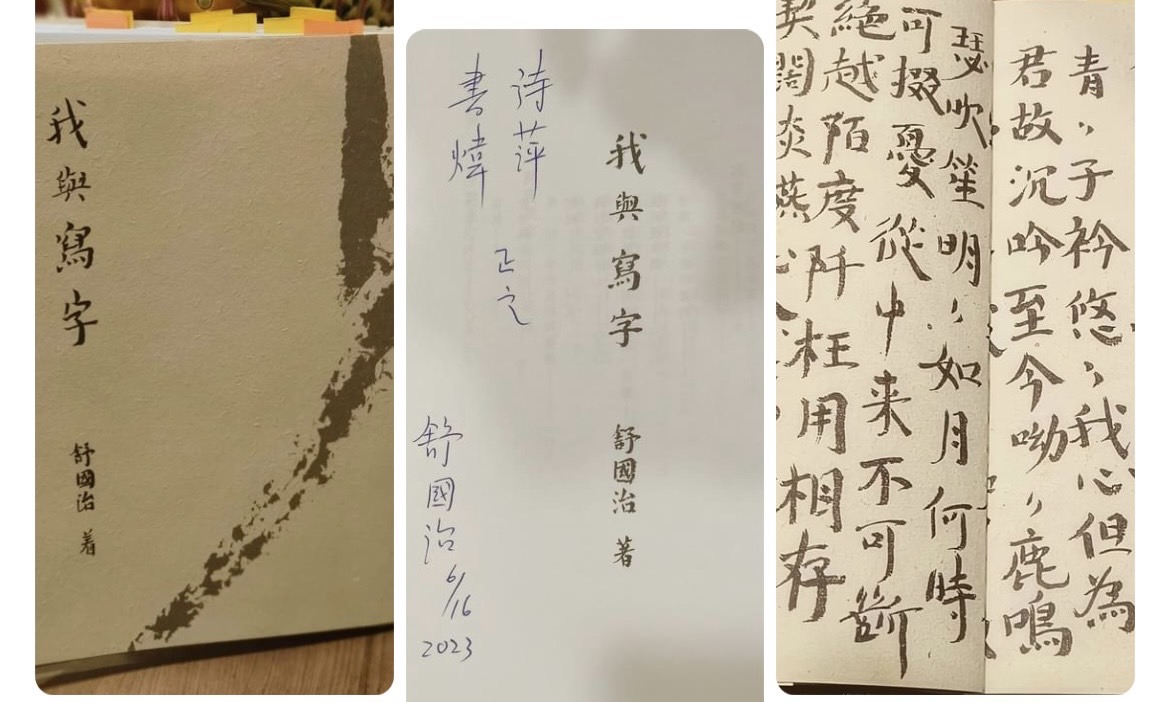 我與寫字
舒國治 著
我與寫字
舒國治 著
诗萍
書煒
正之
舒國治
6/16
2023
青〻子衿悠〻我心但為
君故沉吟至今呦〻鹿鳴
瑟吹笙明〻如月何時
可掇憂從中来不可斷
絕越陌度阡枉用相存
契闊